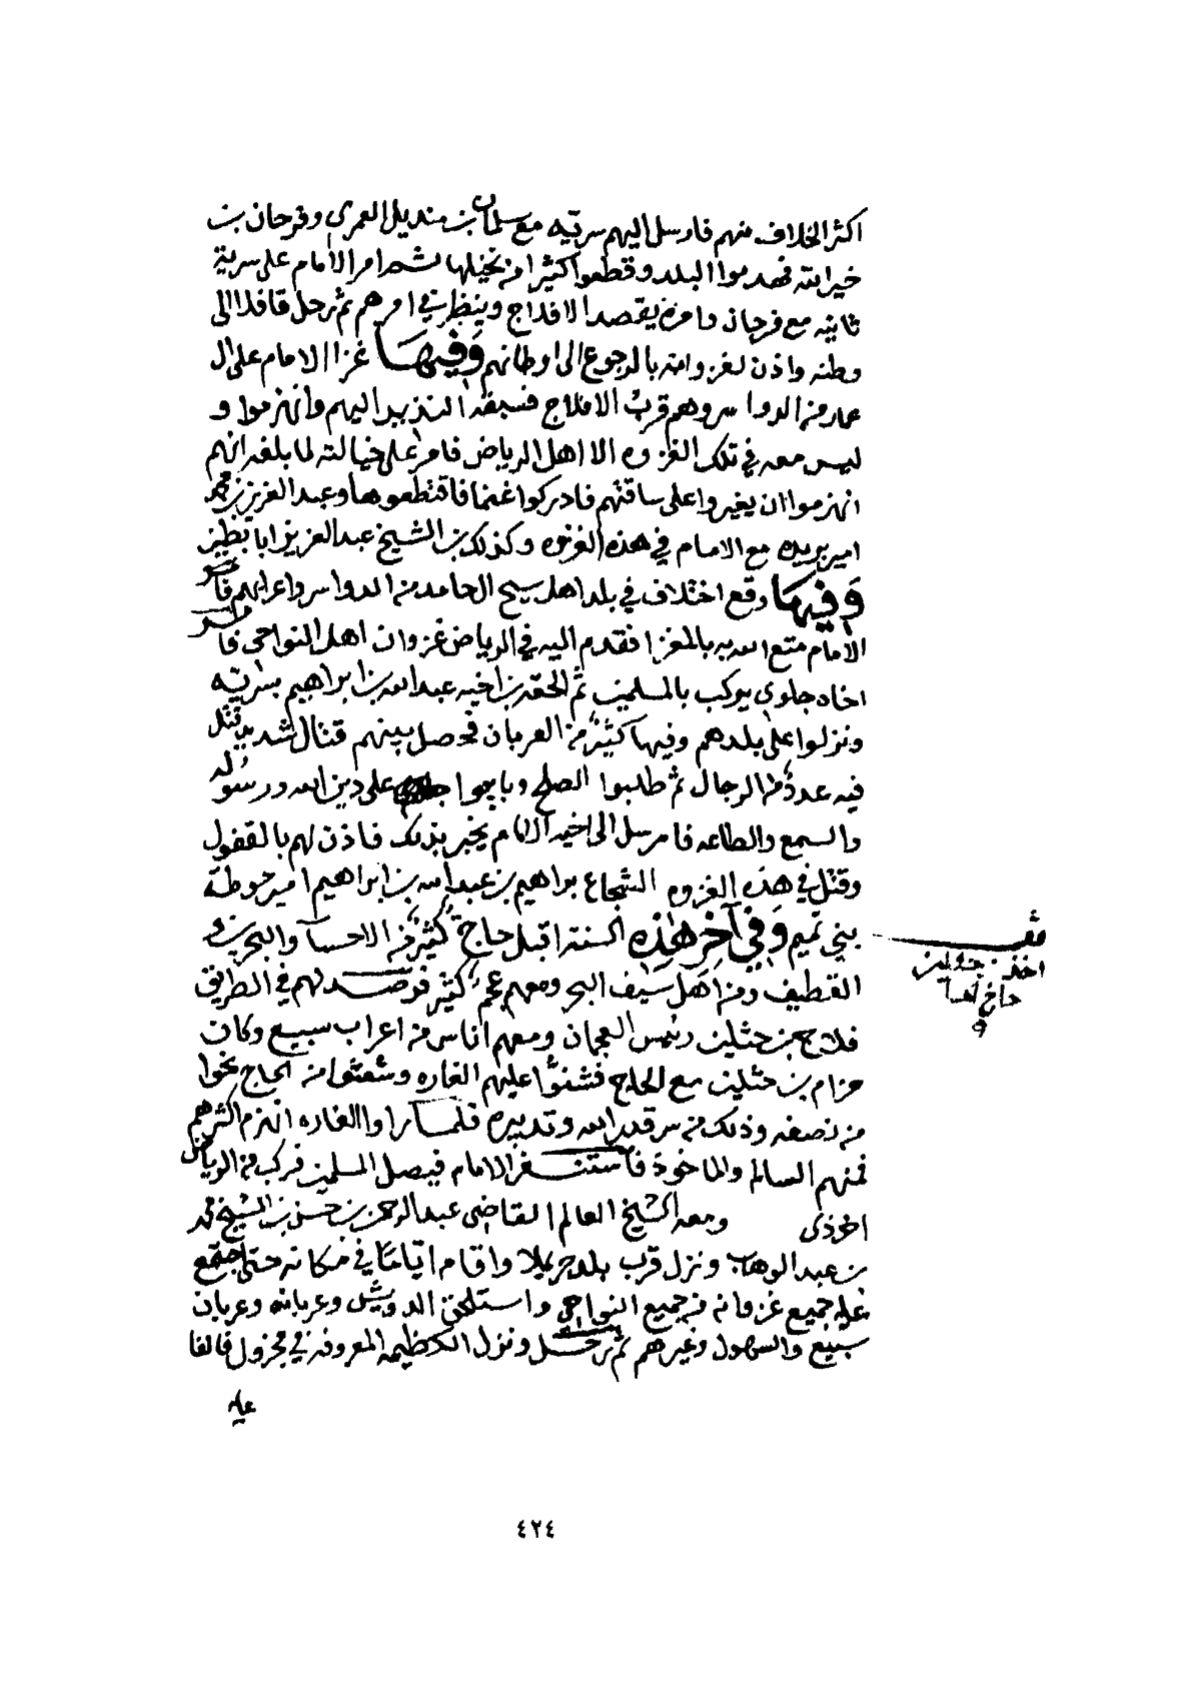 اكثر الخلاف منهم فارسل اليهم سريه مع سلمان بن منديل العمري وفرحان بن
خير الله فهدموا البلد وقطعوا كثيرا من نخيلها ثم امر الامام على سرية
ثانيه مع فرحان وامره يقصد الافلاج وينظر في امرهم ثم رحل قافلا الى
وطنه واذن لغزوانه بالرجوع الى اوطانهم وفيها غزا الامام على ال
عمار من الدواسر وهم قرب الافلاج فسبقه النذير اليهم وانهزموا و
ليس معه في تلك الغزوه الا اهل الرياض فامر على خيالته لما بلغه انهم
انهزموا ان يغيروا على ساقتهم فادركوا غنما فاقتطعوها وعبد العزيز بن محمد
امير بريده مع الامام في هذه الغزوه وكذلك بن الشيخ عبد العزيز ابا بطين
وفيها وقع اختلاف في بلد اهل سيح ال حامد من الدواسر واعرابهم
الامام متع الله به بالمغزا فقدم اليه في الرياض غزوان اهل النواحي فا
اخاه جلوي يركب بالمسلمين ثم الحقه بن اخيه عبد الله بن ابراهيم بسريه
ونزلوا على بلدهم وفيها كثير من العربان فحصل بينهم قتال شديد قتل
فيه عدة من الرجال ثم طلبوا الصلح وبايعوا على دين الله ورسوله
والسمع والطاعه فارسل الى اخيه الامام يخبر بذلك فاذن لهم بالقفول
وقتل في هذه الغزوه الشجاع براهيم بن عبد الله بن ابراهيم امير حوطة
بني تميم وفي آخر هذه السنة اقبل حاج كثير من الاحسا والبحرين و
القطيف ومن اهل سيف البحر ومعهم عجم كثير فرصد لهم في الطريق
فلاح بن حثلين رئيس العجمان ومعهم اناس من اعراب سبيع وكان
حزام بن حثلين مع الحاج فشنوا عليهم الغاره وشعثوا من الحاج نحوا
من نصفه وذلك من سر قدر الله وتدبيره فلما راوا الغاره انهزم اكثرهم
فمنهم السالم والماخوذ فاستنفر الامام فيصل المسلمين فركب من الرياض
ومعه الشيخ العالم القاضي عبد الرحمن بن حسن بن الشيخ محمد
بن عبد الوهاب ونزل قرب بلد حريملا واقام اياما في مكانه حتى اجتمع
عليه جميع غزوانه من جميع النواحي واستلحق الدويش وعربانه وعربان
سبيع والسهول وغيرهم ثم رحل ونزل الكظيمه المعروفه في مجزول فالفا
عليه
اخذ بن حثلين
حاج لحسا
٤٢٤